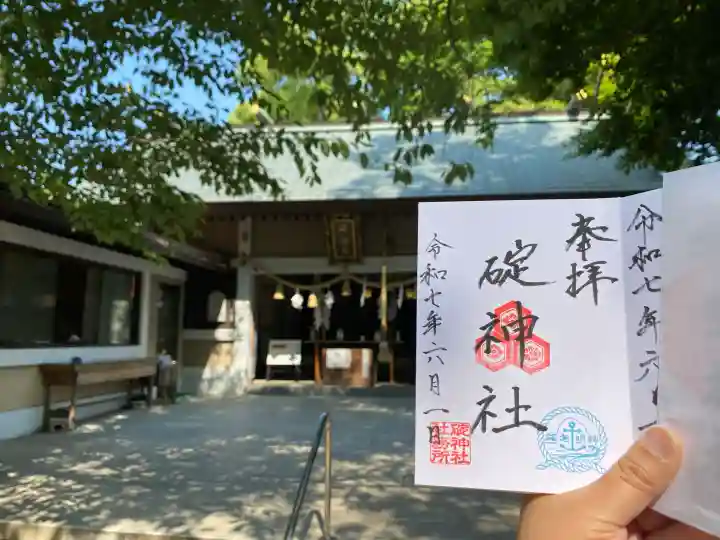 奉拝
碇神社
令和七年六月一日
碇神社
社務所
令和七年六月一